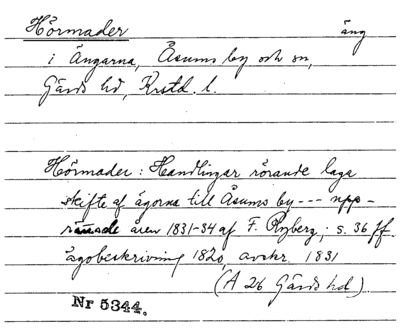 Hörmader äng
i Ängarna, Åsums by och sn,
Gärds hd, Krstd. l.
Hörmader: Handlingar rörande laga
skifte af ägorna till Åsums by --- upp-
rättade åren 1831-34 af F. Ryberg; s. 36 ff.
ägobeskrivning 1820, avskr. 1831
(A 26 Gärds hd)
Nr 5344.